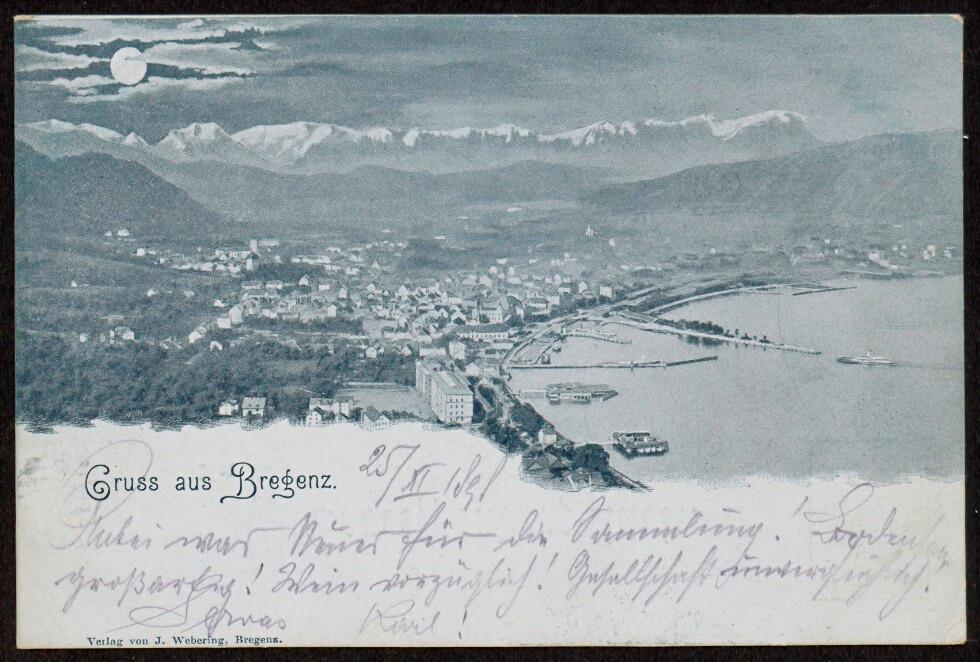 Gruss aus Bregenz.
25/XI 1898
Anbei was Neues für die Sammlung! Bodensee
großartig! Wein vorzüglich! Gesellschaft unvergleichlich!
Servas Karl!
Verlag von J. Webering, Bregenz.